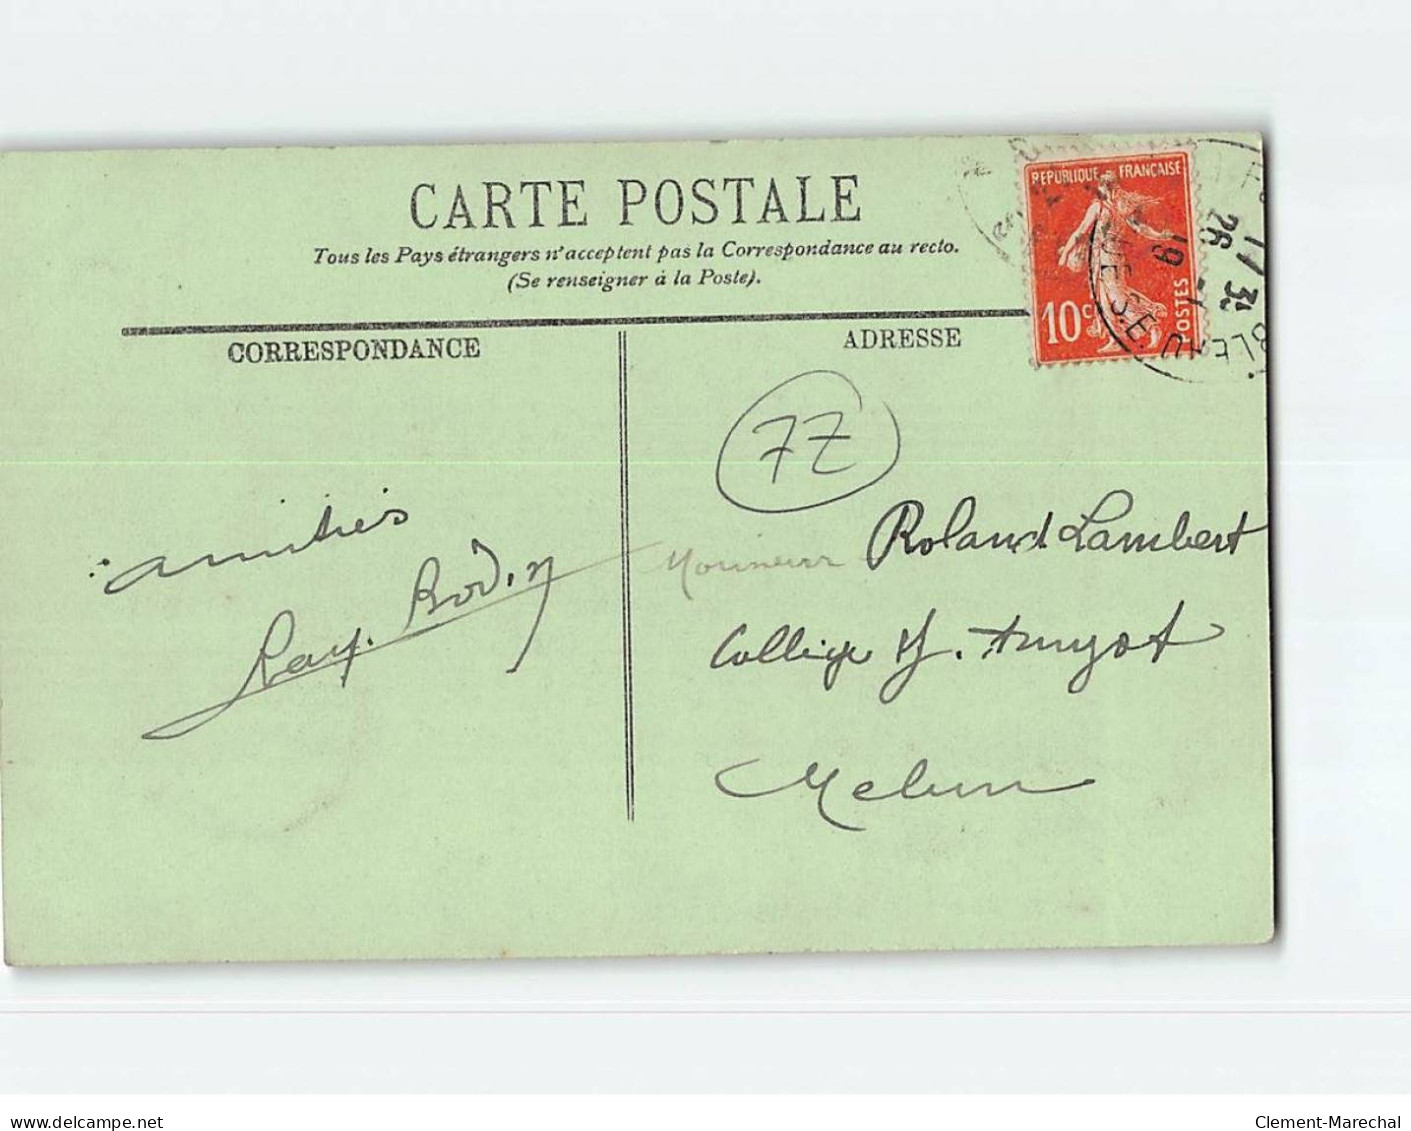 CARTE POSTALE
Tous les Pays étrangers n'acceptent pas la Correspondance au recto.
(Se renseigner à la Poste).
REPUBLIQUE FRANÇAISE
10c
POSTES
17 35
26
19
BLEAU
S.E.
CORRESPONDANCE
ADRESSE
77
amitiés
Ray. Bodin
Monsieur Roland Lambert
Collège J. Amyot
Melun
www.delcampe.net
Clement-Marechal